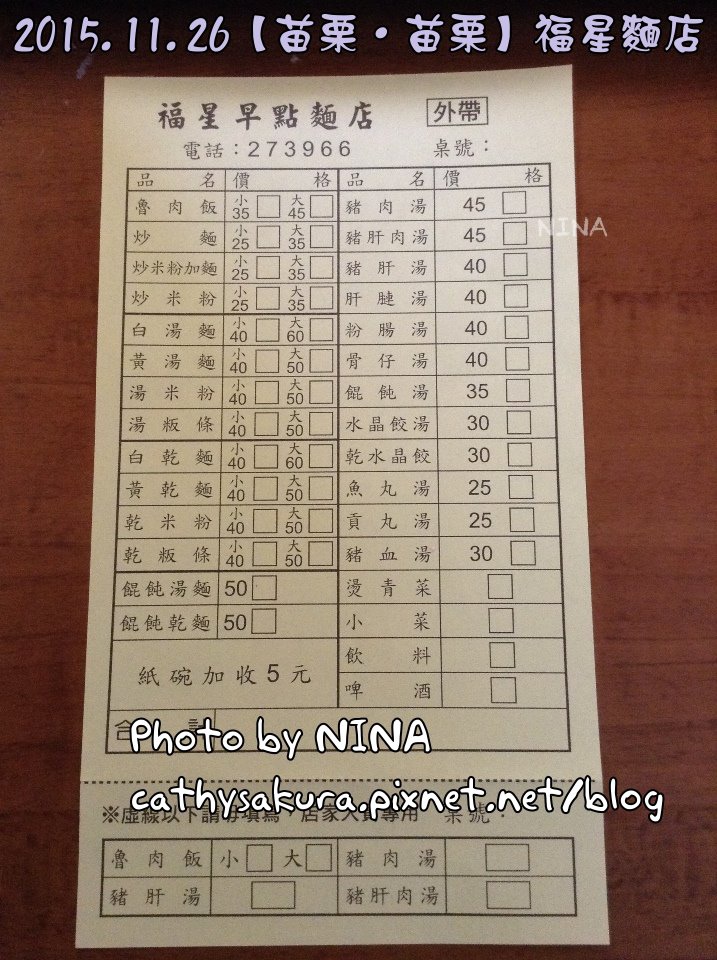 2015.11.26【苗栗·苗栗】福星麵店
福星早點麵店 外帶
電話：273966 桌號：
品名 價格 品名 價格
魯肉飯 小35 大45 豬肉湯 45
NINA
炒麵 小25 大35 豬肝肉湯 45
炒米粉加麵 小25 大35 豬肝湯 40
炒米粉 小25 大35 肝腱湯 40
白湯麵 小40 大60 粉腸湯 40
黃湯麵 小40 大50 骨仔湯 40
湯米粉 小40 大50 餛飩湯 35
湯粄條 小40 大50 水晶餃湯 30
白乾麵 小40 大60 乾水晶餃 30
黃乾麵 小40 大50 魚丸湯 25
乾米粉 小40 大50 貢丸湯 25
乾粄條 小40 大50 豬血湯 30
餛飩湯麵 50 燙青菜
餛飩乾麵 50 小菜
紙碗加收5元 飲料
啤酒
合計
Photo by NINA
cathysakura.pixnet.net/blog
※虛線以下請勿填寫，店家人員專用 桌號：
魯肉飯 小 大 豬肉湯
豬肝湯 豬肝肉湯